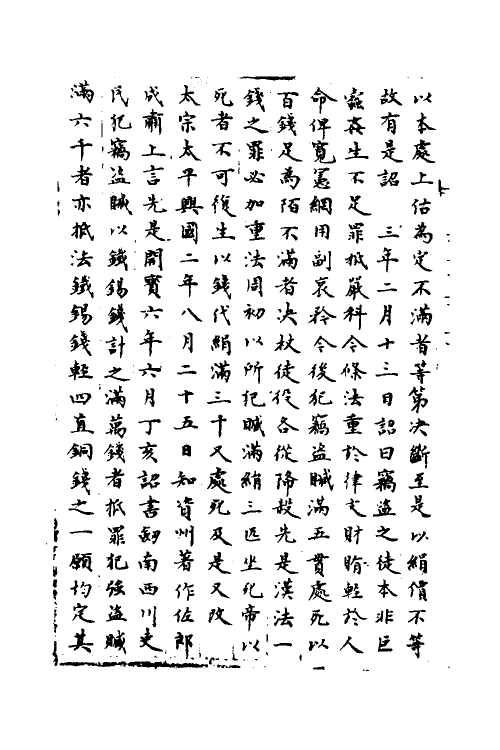 以本處上估為定不滿者等第決斷至是以絹價不等
故有是詔　三年二月十三日詔曰竊盜之徒本非巨
蠹姦生不足罪抵嚴科今條法重於律文財賄輕於人
命俾寬憲網用副哀矜今後犯竊盜贓滿五貫處死以
百錢足為陌不滿者決杖徒役各從降殺先是漢法一
錢之罪必加重法周初以所犯贓滿絹三匹坐死帝以
死者不可復生以錢代絹滿三千又處死及是又改
太宗太平興國二年八月二十五日知資州著作佐郎
成肅上言先是開寶六年六月丁亥詔書劍南西川吏
民犯竊盜贓以鐵錫錢計之滿萬錢者抵罪犯強盜贓
滿六千者亦抵法鐵錫錢輕四直銅錢之一願均定其